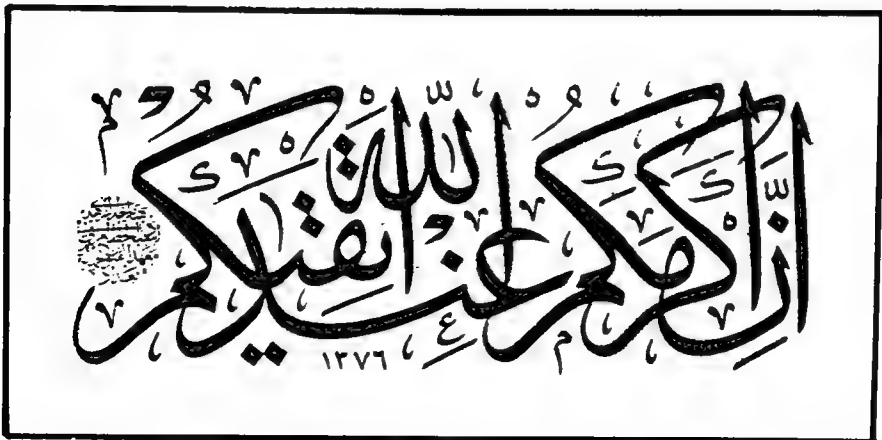 إن أكرمكم عند الله أتقيكم
١٣٧٦